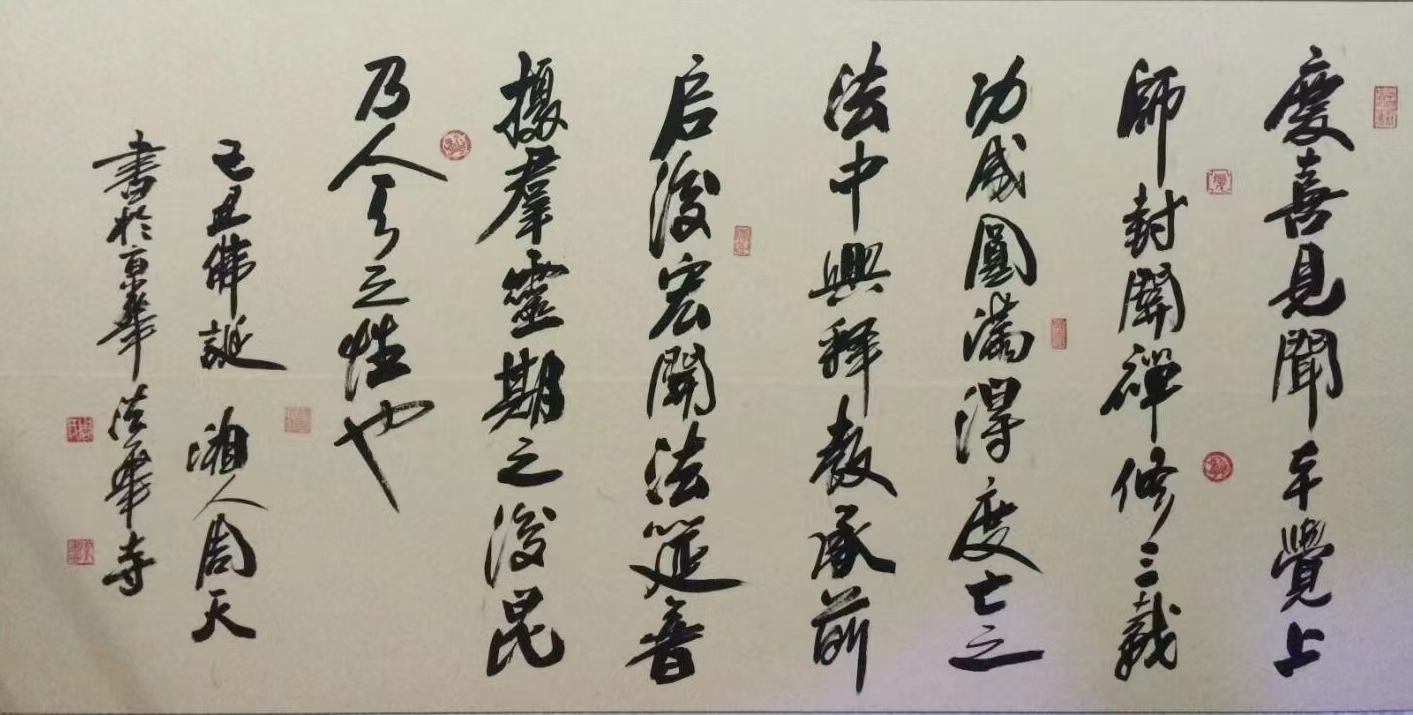 慶喜見聞本覺上
師封關禪修三載
功成圓滿得度亡之
法中興釋教承前
启後宏開法筵普
攝羣靈期之後昆
乃人之性也
己丑佛誕 湘人周天
書於京華法華寺